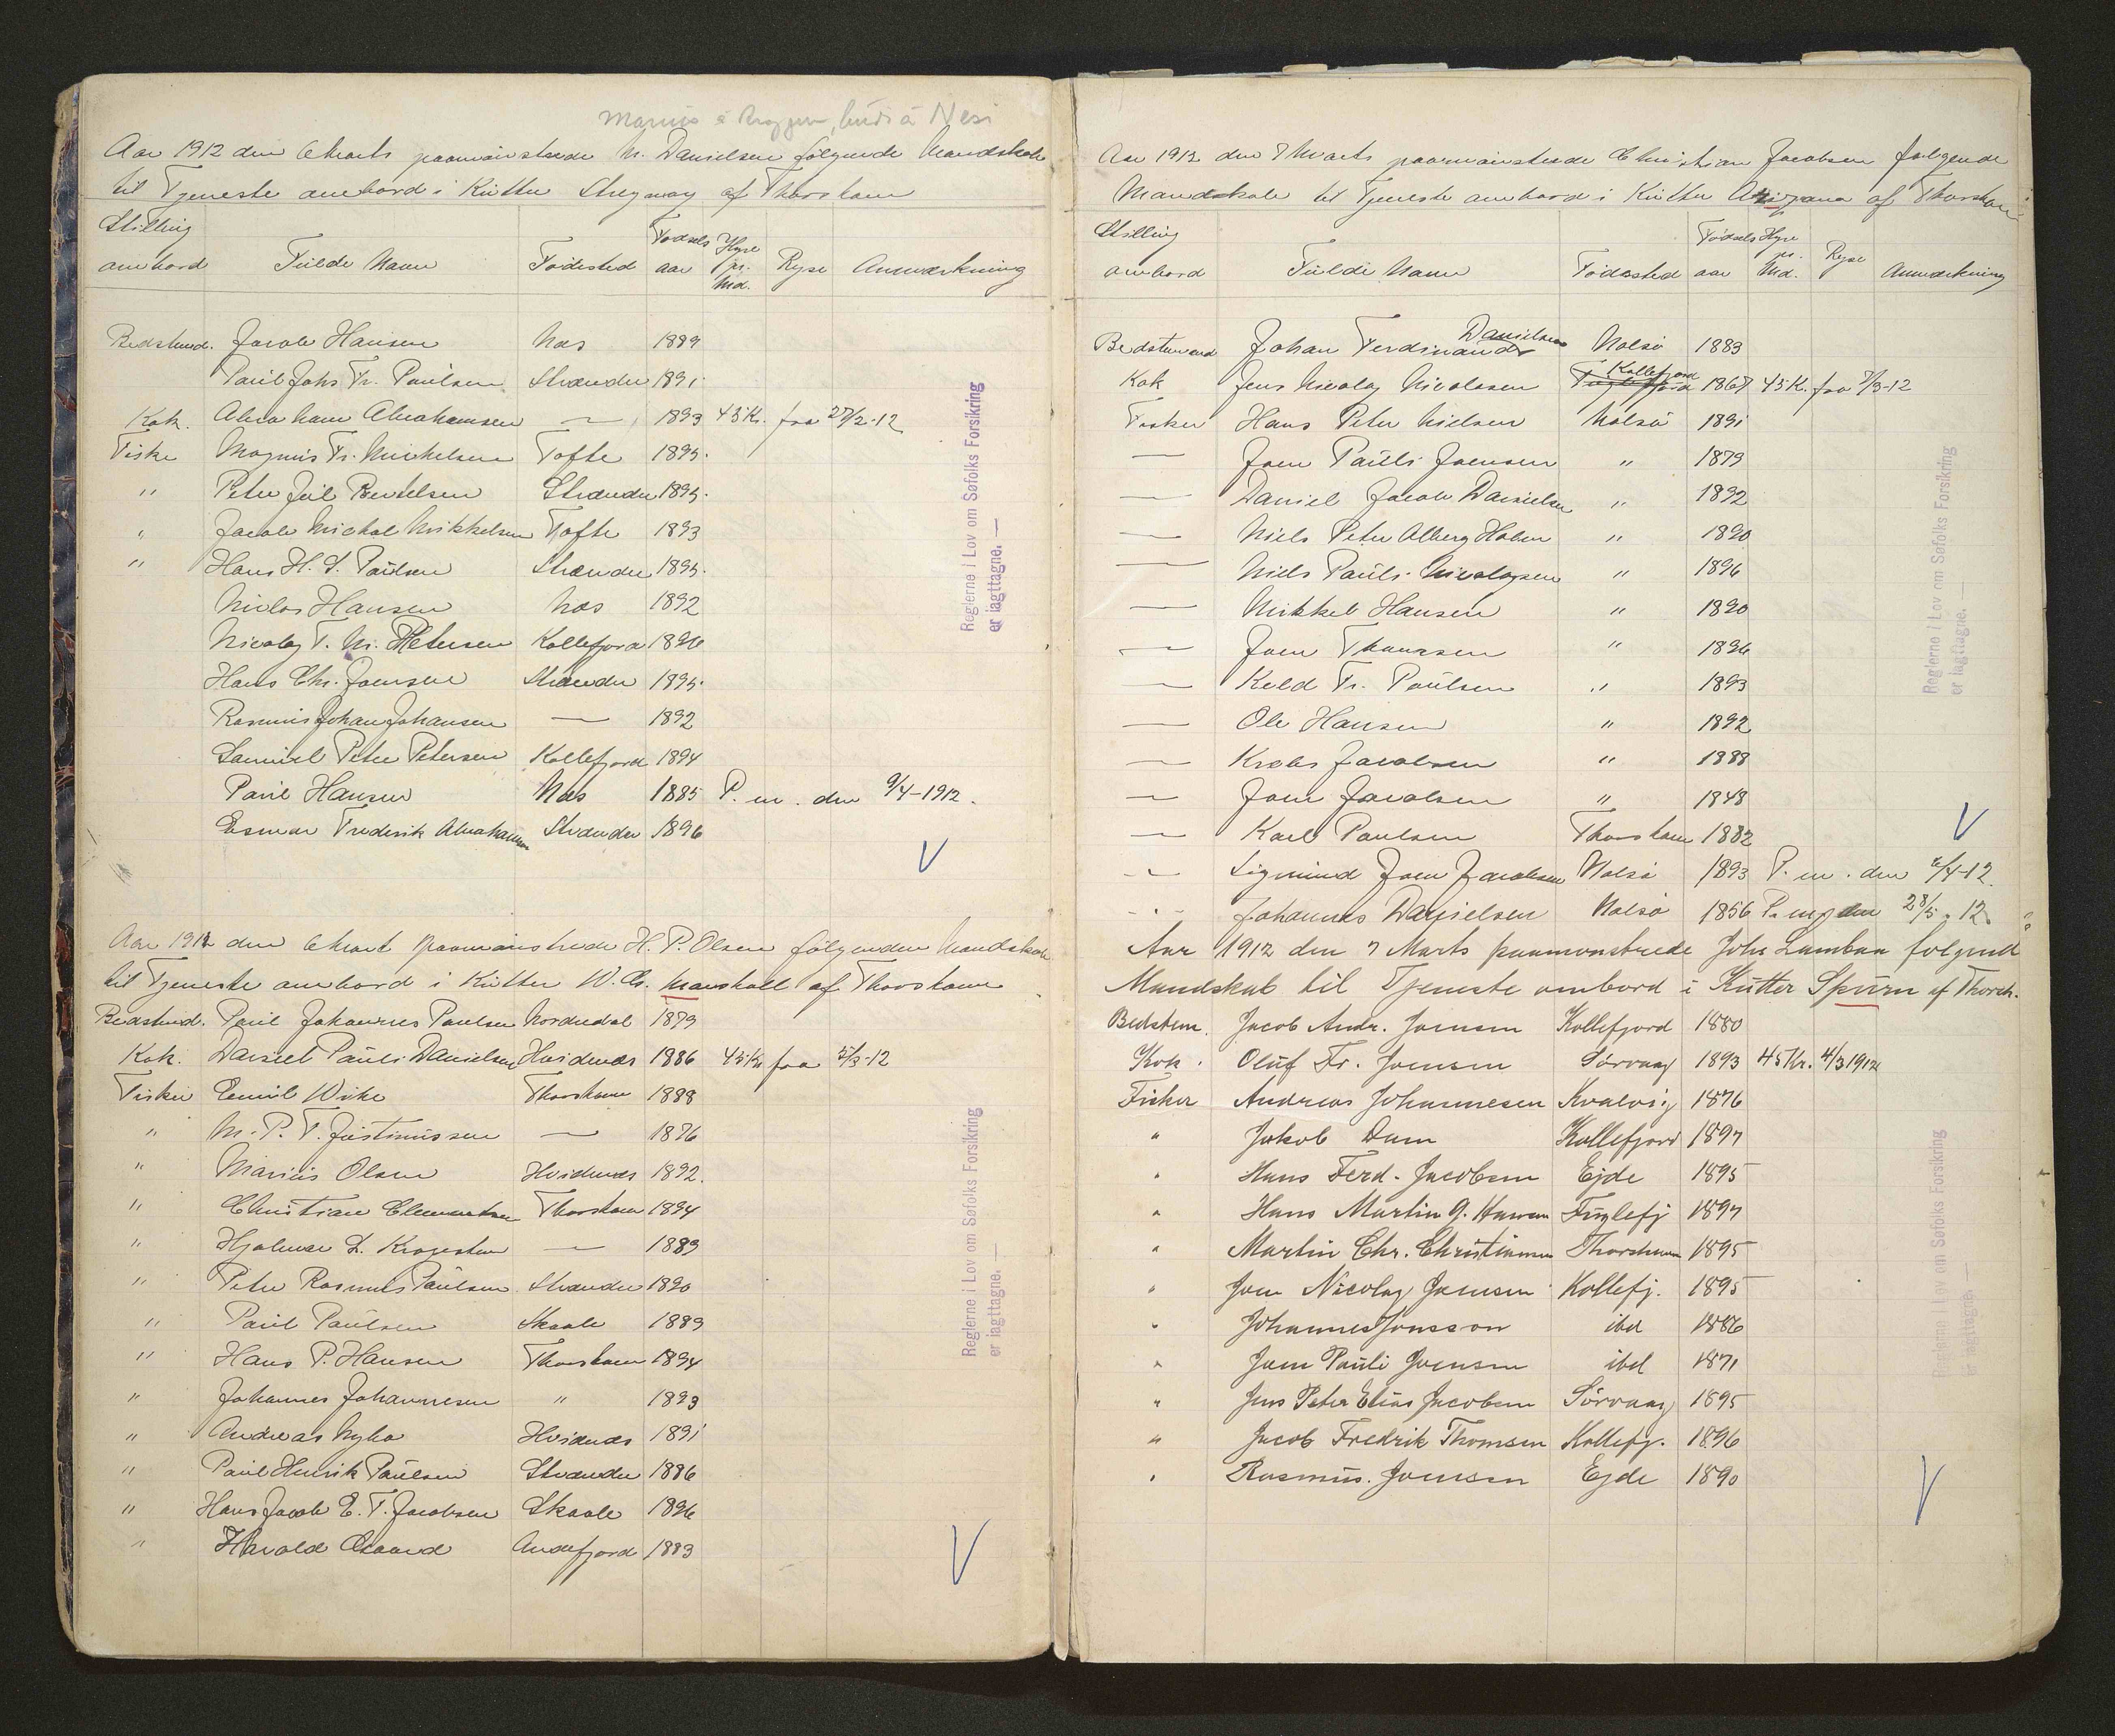 Marius á Bryggjuni, búði á Nesi
Aar 1912 den 6 Marts paamönstrede M. Danielsen fölgende Mandskab
til Tjeneste ombord i Kutter Stegway af Thorshavn
Stilling ombord Fulde Navn Födested Födsels aar Hyre pr. Md. Ryse Anmærkning
Bedstmd. Jacob Hansen Næs 1889
Paul Johs Fr. Paulsen Strænder 1891
Kok. Abraham Abrahamsen — 1893 45 Kr. fra 27/2-12
Fisker Magnus Fr. Michelsen Tofte 1895.
" Peter Juel Bertelsen Strænder 1895.
" Jacob Michal Mikkelsen Tofte 1893
" Hans H. S. Paulsen Strænder 1895.
Niclas Hansen Næs 1892
Nicolay T. M. Petersen Kollefjord 1896
Hans Chr. Joensen Strænder 1895.
Rasmus Johan Johansen — 1892
Samuel Peter Petersen Kollefjord 1894
Paul Hansen Næs 1885 P. m. den 9/4-1912.
Esmar Frederik Abrahamsen Strænder 1896
Reglerne i Lov om Søfolks Forsikring
er iagttagne. —
Aar 1912 den 6 Mart paamönstrede H. P. Olsen fölgenden Mandskab
til Tjeneste ombord i Kutter W. Cs. Marshall af Thorshavn
Bedstmd. Paul Johannes Paulsen Nordredal 1879
Kok. Daniel Pauli Danielsen Hvidenæs 1886 45 Kr fra 5/3-12
Fisker Emil Wike Thorshavn 1888
" M. P. T. Justinussen — 1876
" Marius Olsen Hvidenæs 1892.
" Christian Clementsen Thorshavn 1894
" Hjalmar L. Krogestein — 1889
" Peter Rasmus Paulsen Strænder 1890
" Paul Paulsen Skaale 1889
" Hans P. Hansen Thorshavn 1894
" Johannes Johannesen " 1893
" Andreas Nybo Hvidenæs 1891
" Paul Henrik Paulsen Strænder 1886
" Hans Jacob E. T. Jacobsen Skaale 1896
" Harald Aaard Andefjord 1883
Reglerne i Lov om Søfolks Forsikring
er iagttagne. —
Aar 1912 den 7 Marts paamönstrede Christian Jacobsen fölgende
Mandskab til Tjeneste ombord i Kutter af Thorshavn
Stilling ombord Fulde Navn Födested Födsels aar Hyre pr. Md. Ryse Anmærkning
Bedstemand Johan Ferdinand Danielsen Nolsö 1883
Kok Jens Nicolay Nicolasen Fuglefjord Kollefjord 1867 45 K. fra 7/3-12
Fisker Hans Peter Nielsen Nolsö 1891
— Joen Pauli Joensen " 1879
— Daniel Jacob Danielsen " 1892
— Niels Peter Alberg Holm " 1890
— Niels Pauli Nicolaysen " 1896
— Mikkel Hansen " 1890
— Joen Thomsen " 1896
— Keld Fr. Paulsen " 1893
— Ole Hansen " 1892
— Kræs Jacobsen " 1888
— Joen Jacobsen " 1848
— Karl Paulsen Thorshavn 1882
— Sigmund Joen Jacobsen Nolsö 1893 P. m. den 4/4-12.
" Johannes Danielsen Nolsö 1856 P. m. den 28/5-12.
Reglerne i Lov om Søfolks Forsikring
er iagttagne. —
Aar 1912 den 7 Marts paamonstrede Johs Lambaa folgend
Mandskab til Tjeneste ombord i Kutter Spurn af Thorsh.
Bedstem. Jacob Andr. Joensen Kollefjord 1880
Kok. Oluf Fr. Joensen Sörvaag 1893 45 Kr. 4/3 1912
Fisker Andreas Johannesen Kvalvig 1876
" Jakob Dam Kollefjord 1897
" Hans Ferd. Jacobsen Ejde 1895
" Hans Martin J. Hansen Fuglefj 1897
" Martin Chr. Christiansen Thorshavn 1895
" Joen Nicolay Joensen Kollefj. 1895
" Johannes Jonsson ibd 1886
" Joen Pauli Joensen ibd 1871
" Jens Peter Elias Jacobsen Sörvaag 1895
" Jacob Fredrik Thomsen Kollefj. 1896
" Rasmus Joensen Ejde 1890
Reglerne i Lov om Søfolks Forsikring
er iagttagne. —